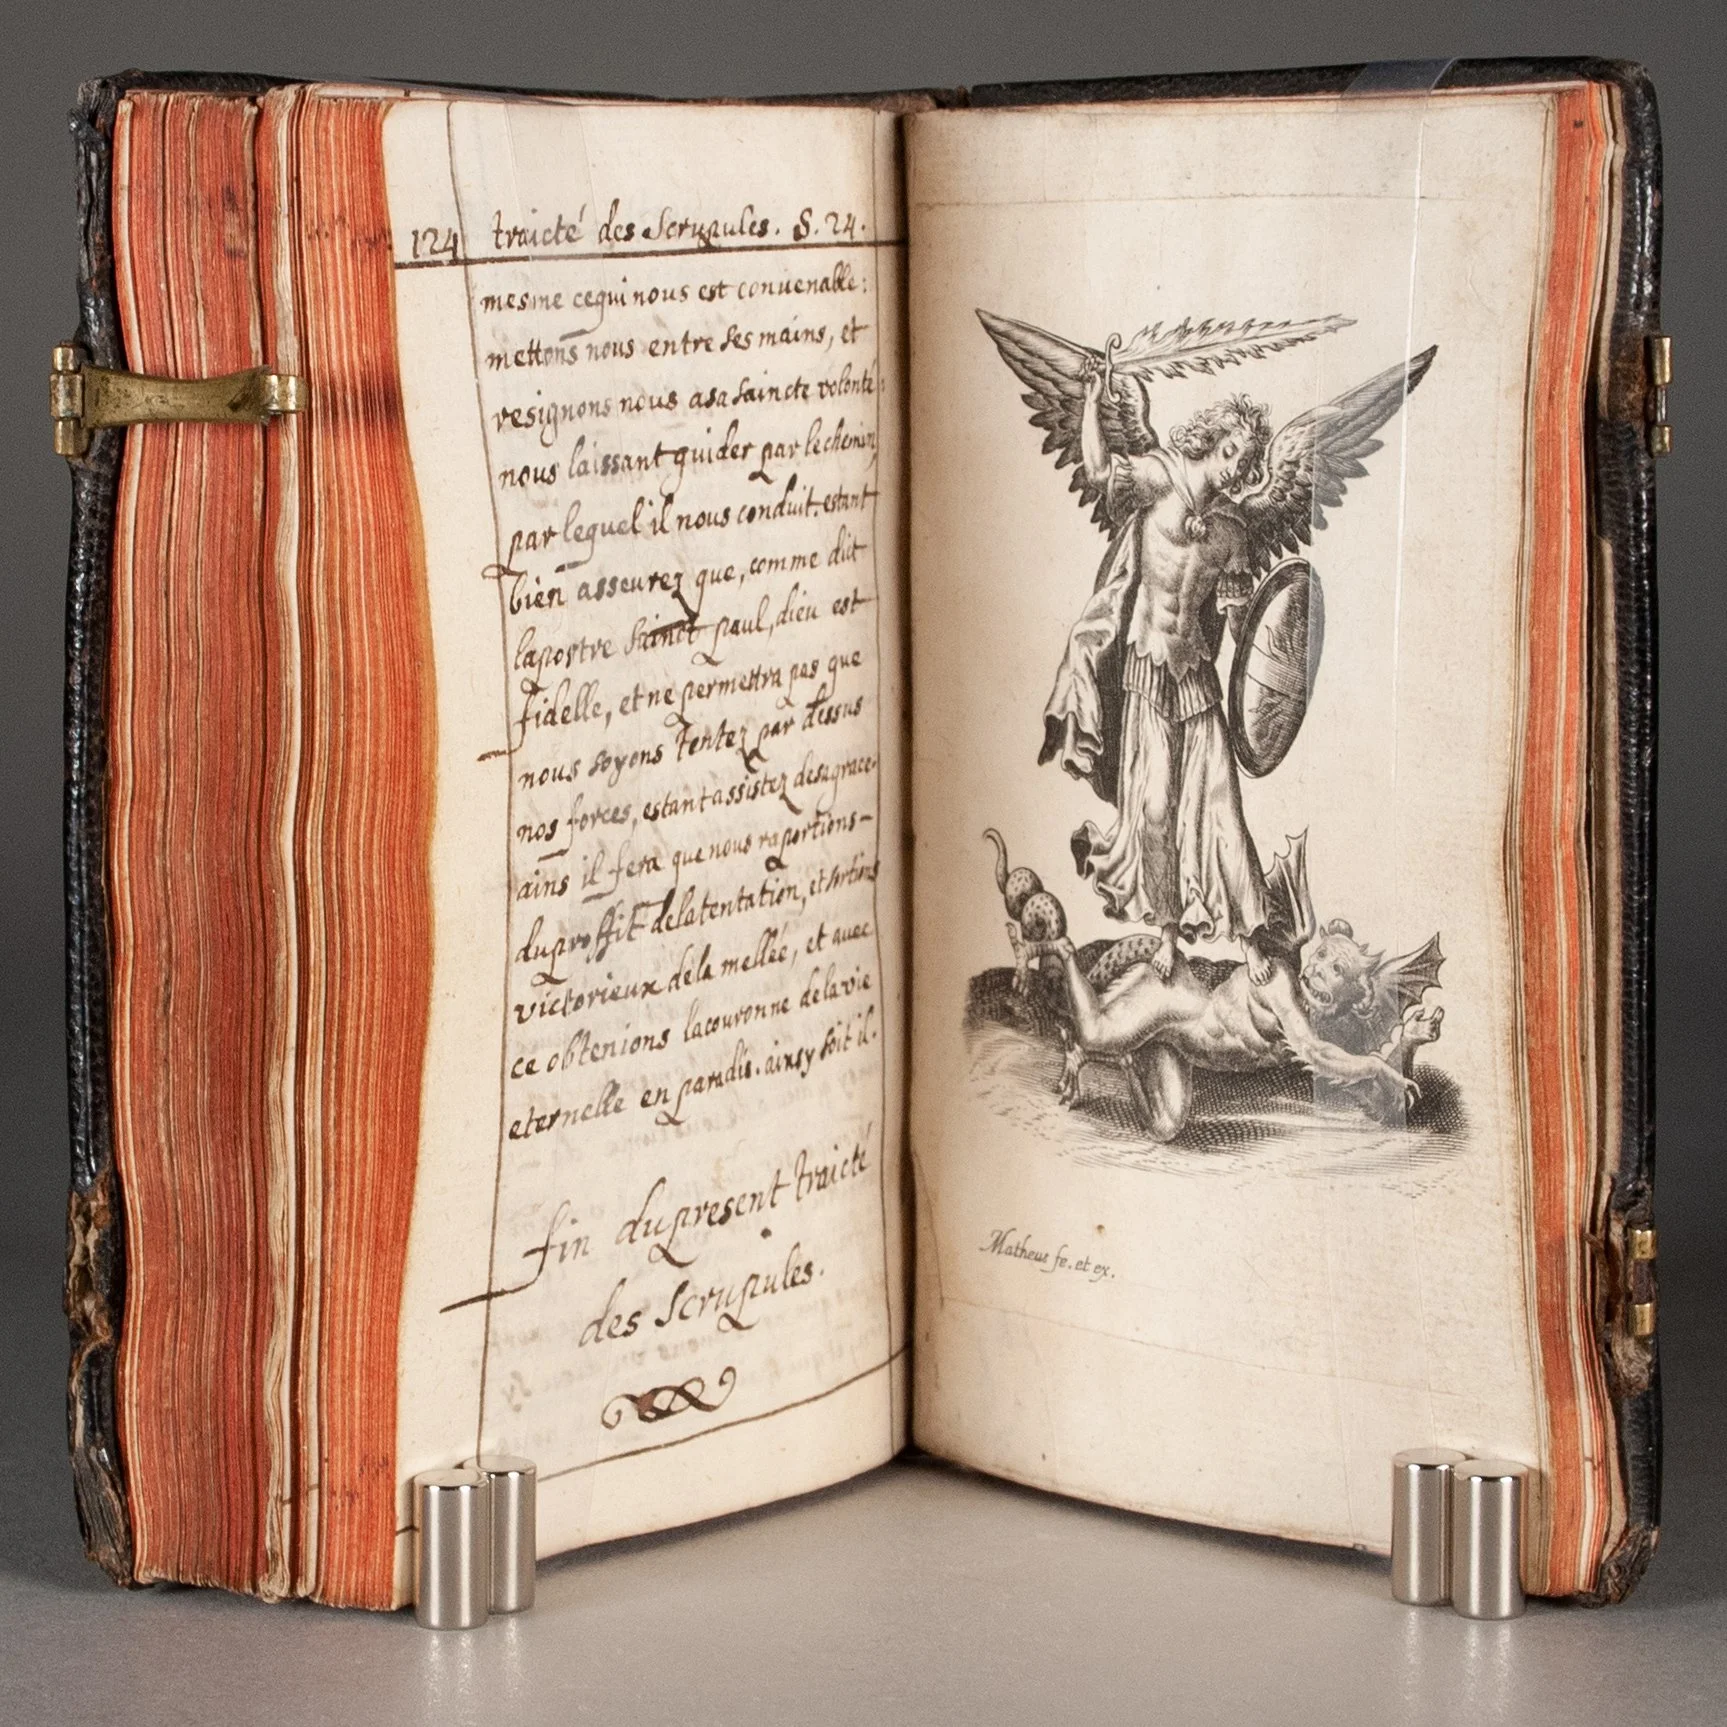 124 traicté des Scrupules. §. 24.
mesme cequi nous est conuenable:
mettons nous entre ses mains, et
resignons nous asa saincte volonté:
nous laissant guider par lechemin,
par lequel il nous conduit. estant
bien asseurez que, comme dit
lapostre sainct paul, dieu est
fidelle, et ne permettra pas que
nous soyons tentez par dessus
nos forces, estant assistez desagrace.
ains il fera que nous raportions
duproffit delatentation, et sortions
victorieux dela mellée, et auec
ce obtenions lacouronne delavie
eternelle en paradis. ainsy soit il.
fin dupresent traicté
des Scrupules.
Matheus fe. et ex.